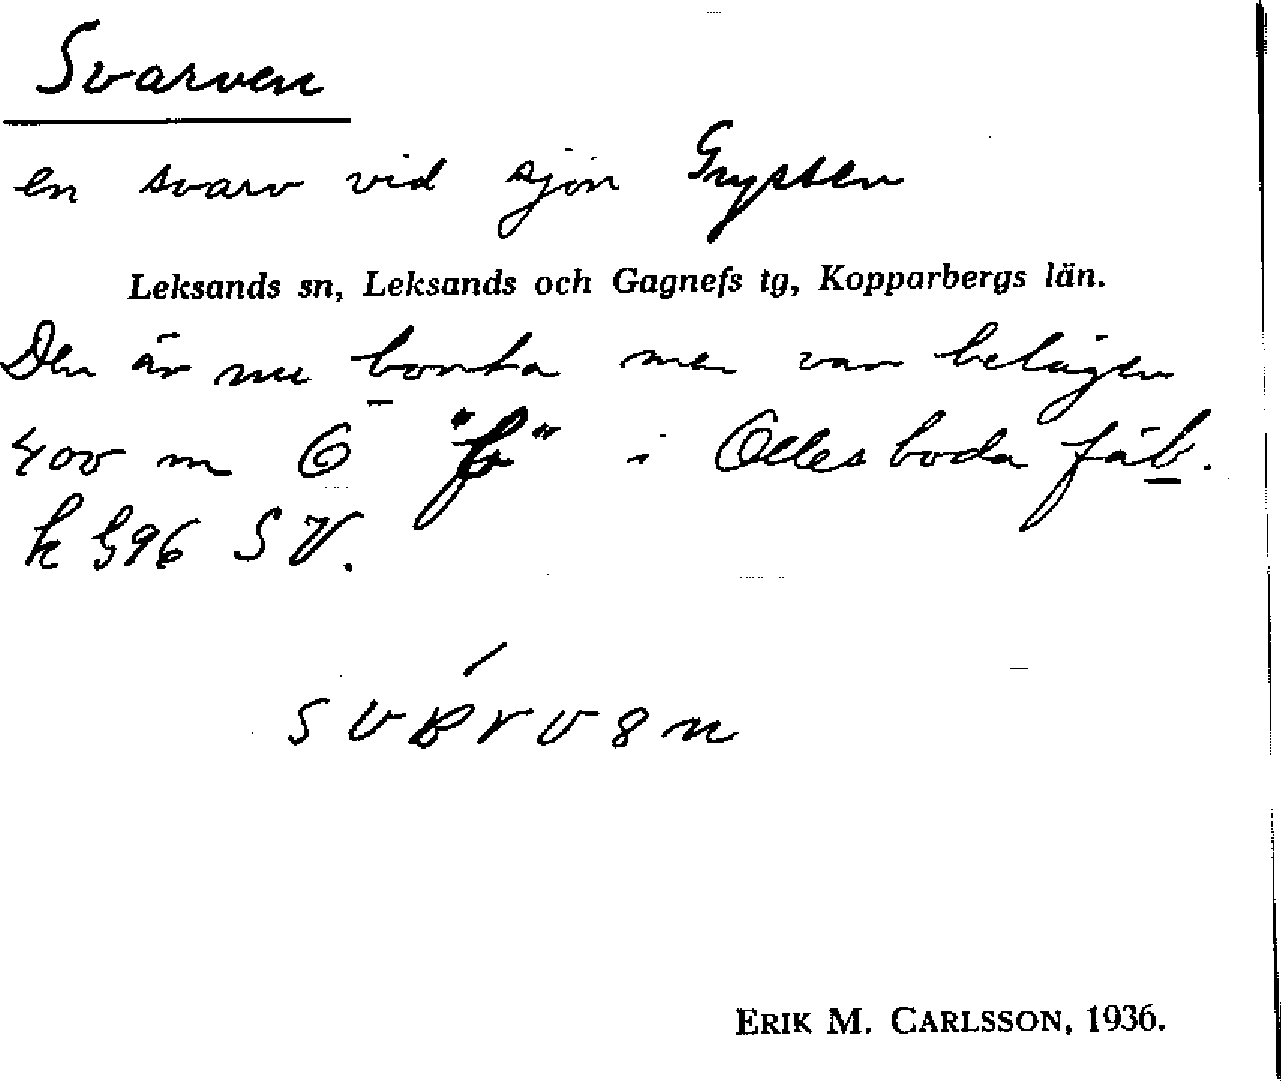 Svarven
en svarv vid sjön Grysten
Leksands sn, Leksands och Gagnefs tg, Kopparbergs län.
Den är nu borta men var belägen
400 m Ö "f" i Ollesboda fäb.
k 596 SV.
ERIK M. CARLSSON, 1936.